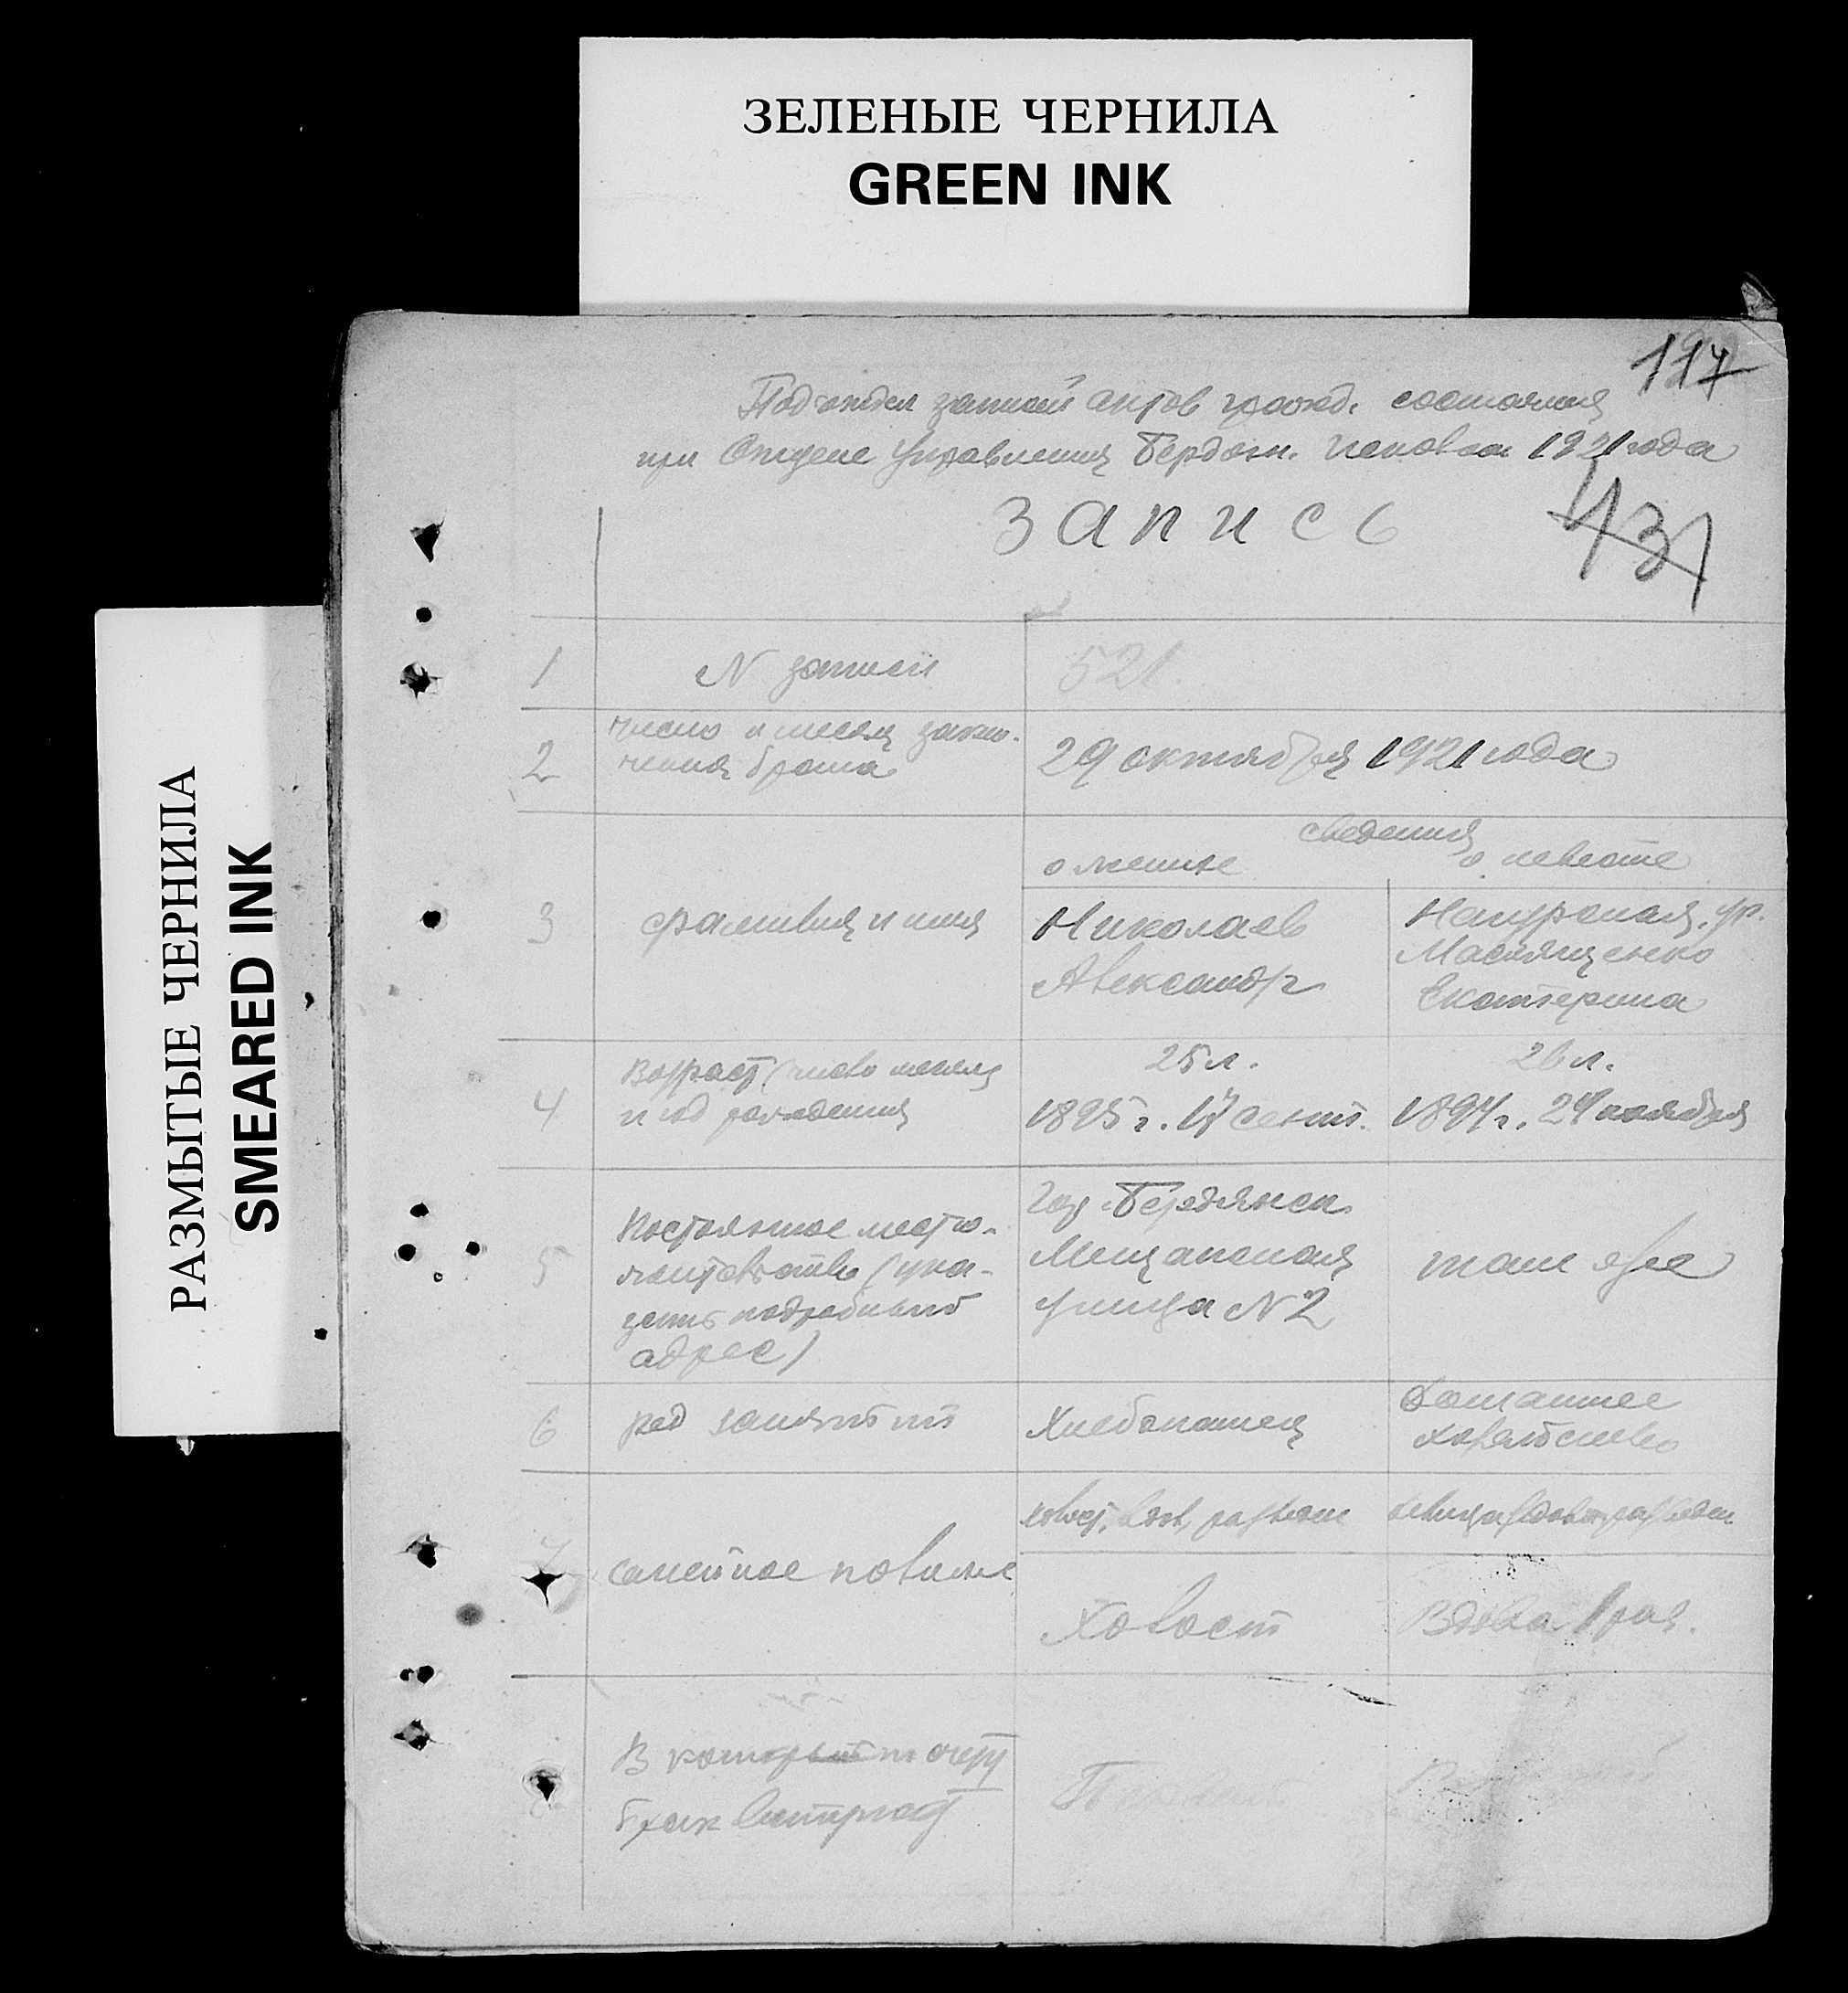 ЗЕЛЕНЫЕ ЧЕРНИЛА
GREEN INK
РАЗМЫТЫЕ ЧЕРНИЛА
SMEARED INK
117
Подотдел записей актов гражд. состояния
при Отделе Управления Бердян. 1921 года
Запись
431
1 N записи 521.
2 число и месяц заклю-
чения брака 29 октября 1921 года
сведения
о женихе о невесте
3 фамилия и имя Николаев
Александр
ур.
Маслященко
Екатерина
4 Возраст (число месяц
и год рождения 25 л.
1895 г. 17 сент.
26 л.
1894 г. 24 ноября
5 Постоянное место-
жительство (ука-
зать подробный
адрес)
Гор. Бердянск
Мещанская
улица N 2
там же
6 род занятий Хлебопашец
Домашнее
хозяйство
7 семейное полож
холост, вдов, разведен
девица вдова разведен
Холост
Вдова
В который
брак вступает